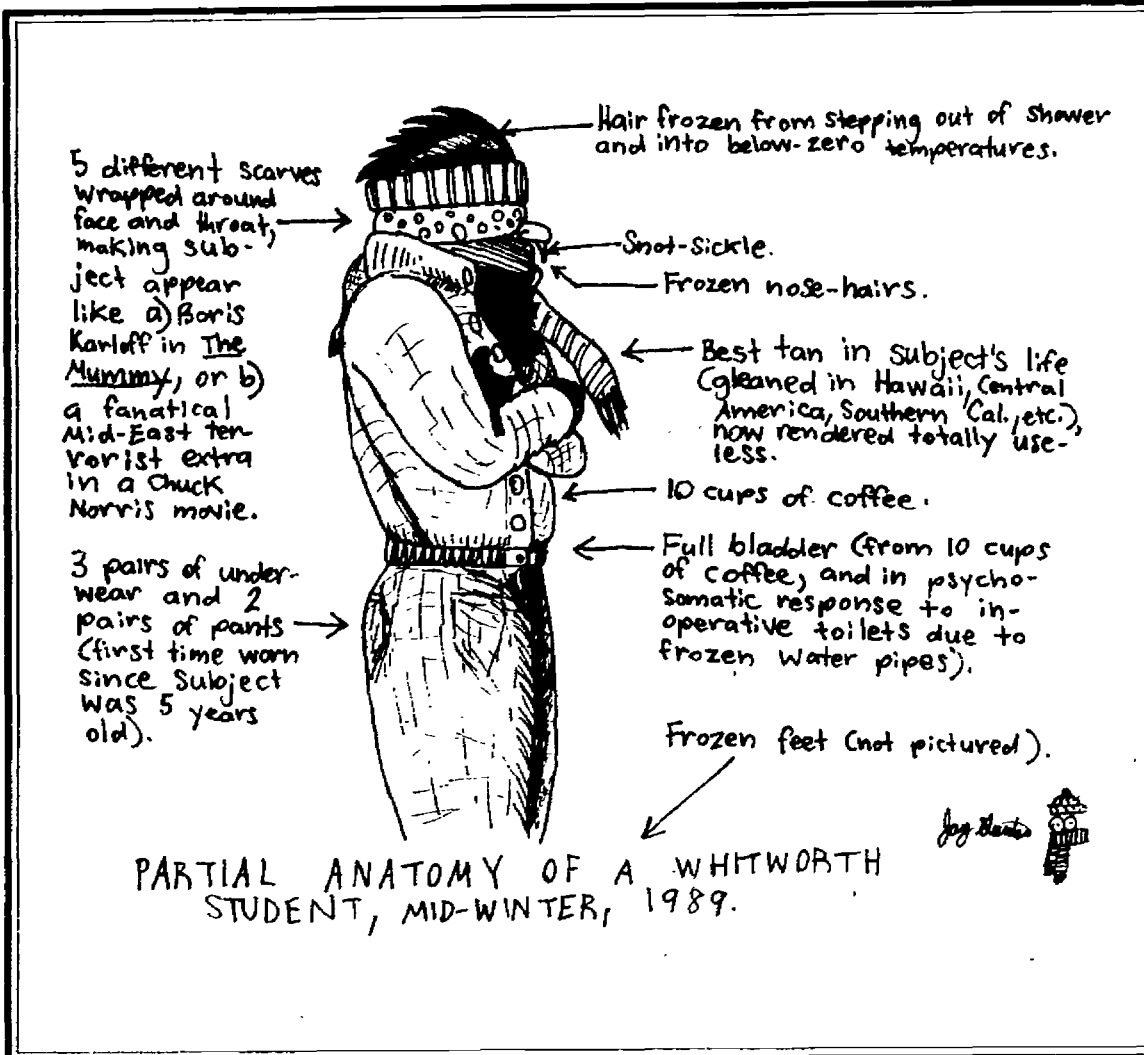 Hair frozen from stepping out of shower
and into below-zero temperatures.
5 different scarves
wrapped around
face and throat,
making sub-
ject appear
like a) Boris
Karloff in The
Mummy, or b)
a fanatical
Mid-East ter-
rorist extra
in a Chuck
Norris movie.
Snot-sickle.
Frozen nose-hairs.
Best tan in subject's life
(gleaned in Hawaii, Central
America, Southern Cal., etc.),
now rendered totally use-
less.
10 cups of coffee.
Full bladder (from 10 cups
of coffee, and in psycho-
somatic response to in-
operative toilets due to
frozen water pipes).
3 pairs of under-
wear and 2
pairs of pants
(first time worn
since subject
was 5 years
old).
Frozen feet (not pictured).
Jay
PARTIAL ANATOMY OF A WHITWORTH
STUDENT, MID-WINTER, 1989.